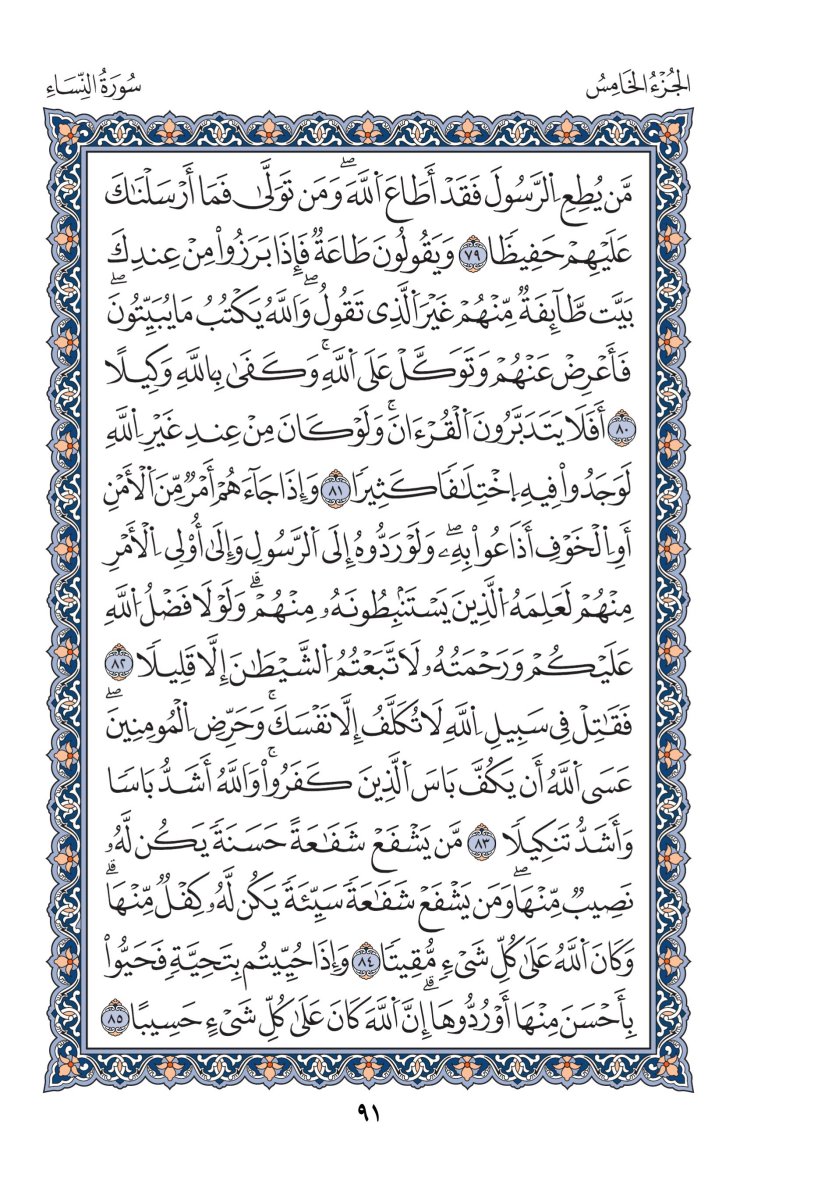 الجُزْءُ الخَامِسُ
سُورَةُ النِّسَاءِ
مَّن يُطِعِ اِ۬لرَّسُولَ فَقَدْ أَطَاعَ اَ۬للَّهَۖ وَمَن تَوَلَّىٰ فَمَا أَرْسَلْنَٰكَ
عَلَيْهِمْ حَفِيظٗا ٧٩ وَيَقُولُونَ طَاعَةٞ فَإِذَا بَرَزُواْ مِنْ عِندِكَ
بَيَّت طَّآئِفَةٞ مِّنْهُمْ غَيْرَ اَ۬لَّذِي تَقُولُۖ وَاَللَّهُ يَكْتُبُ مَا يُبَيِّتُونَۖ
فَأَعْرِضْ عَنْهُمْ وَتَوَكَّلْ عَلَى اَ۬للَّهِۚ وَكَفَىٰ بِاللَّهِ وَكِيلًا
٨٠ أَفَلَا يَتَدَبَّرُونَ اَ۬لْقُرْءَانَۚ وَلَوْ كَانَ مِنْ عِندِ غَيْرِ اِ۬للَّهِ
لَوَجَدُواْ فِيهِ اِ۪خْتِلَٰفٗا كَثِيرٗا ٨١ وَإِذَا جَآءَهُمْ أَمْرٞ مِّنَ اَ۬لْأَمْنِ
أَوِ اِ۬لْخَوْفِ أَذَاعُواْ بِهِۦۖ وَلَوْ رَدُّوهُ إِلَى اَ۬لرَّسُولِ وَإِلَىٰ أُوْلِي اِ۬لْأَمْرِ
مِنْهُمْ لَعَلِمَهُ اُ۬لَّذِينَ يَسْتَنۢبِطُونَهُۥ مِنْهُمْۗ وَلَوْلَا فَضْلُ اُ۬للَّهِ
عَلَيْكُمْ وَرَحْمَتُهُۥ لَاتَّبَعْتُمُ اُ۬لشَّيْطَٰنَ إِلَّا قَلِيلٗا ٨٢
فَقَٰتِلْ فِي سَبِيلِ اِ۬للَّهِ لَا تُكَلَّفُ إِلَّا نَفْسَكَۚ وَحَرِّضِ اِ۬لْمُومِنِينَۖ
عَسَى اَ۬للَّهُ أَن يَكُفَّ بَاسَ اَ۬لَّذِينَ كَفَرُواْۚ وَاَللَّهُ أَشَدُّ بَاسٗا
وَأَشَدُّ تَنكِيلٗا ٨٣ مَّن يَشْفَعْ شَفَٰعَةً حَسَنَةٗ يَكُن لَّهُۥ
نَصِيبٞ مِّنْهَاۖ وَمَن يَشْفَعْ شَفَٰعَةٗ سَيِّئَةٗ يَكُن لَّهُۥ كِفْلٞ مِّنْهَاۗ
وَكَانَ اَ۬للَّهُ عَلَىٰ كُلِّ شَيْءٖ مُّقِيتٗا ٨٤ وَإِذَا حُيِّيتُم بِتَحِيَّةٖ فَحَيُّواْ
بِأَحْسَنَ مِنْهَا أَوْ رُدُّوهَاۗ إِنَّ اَ۬للَّهَ كَانَ عَلَىٰ كُلِّ شَيْءٍ حَسِيبًا ٨٥
٩١